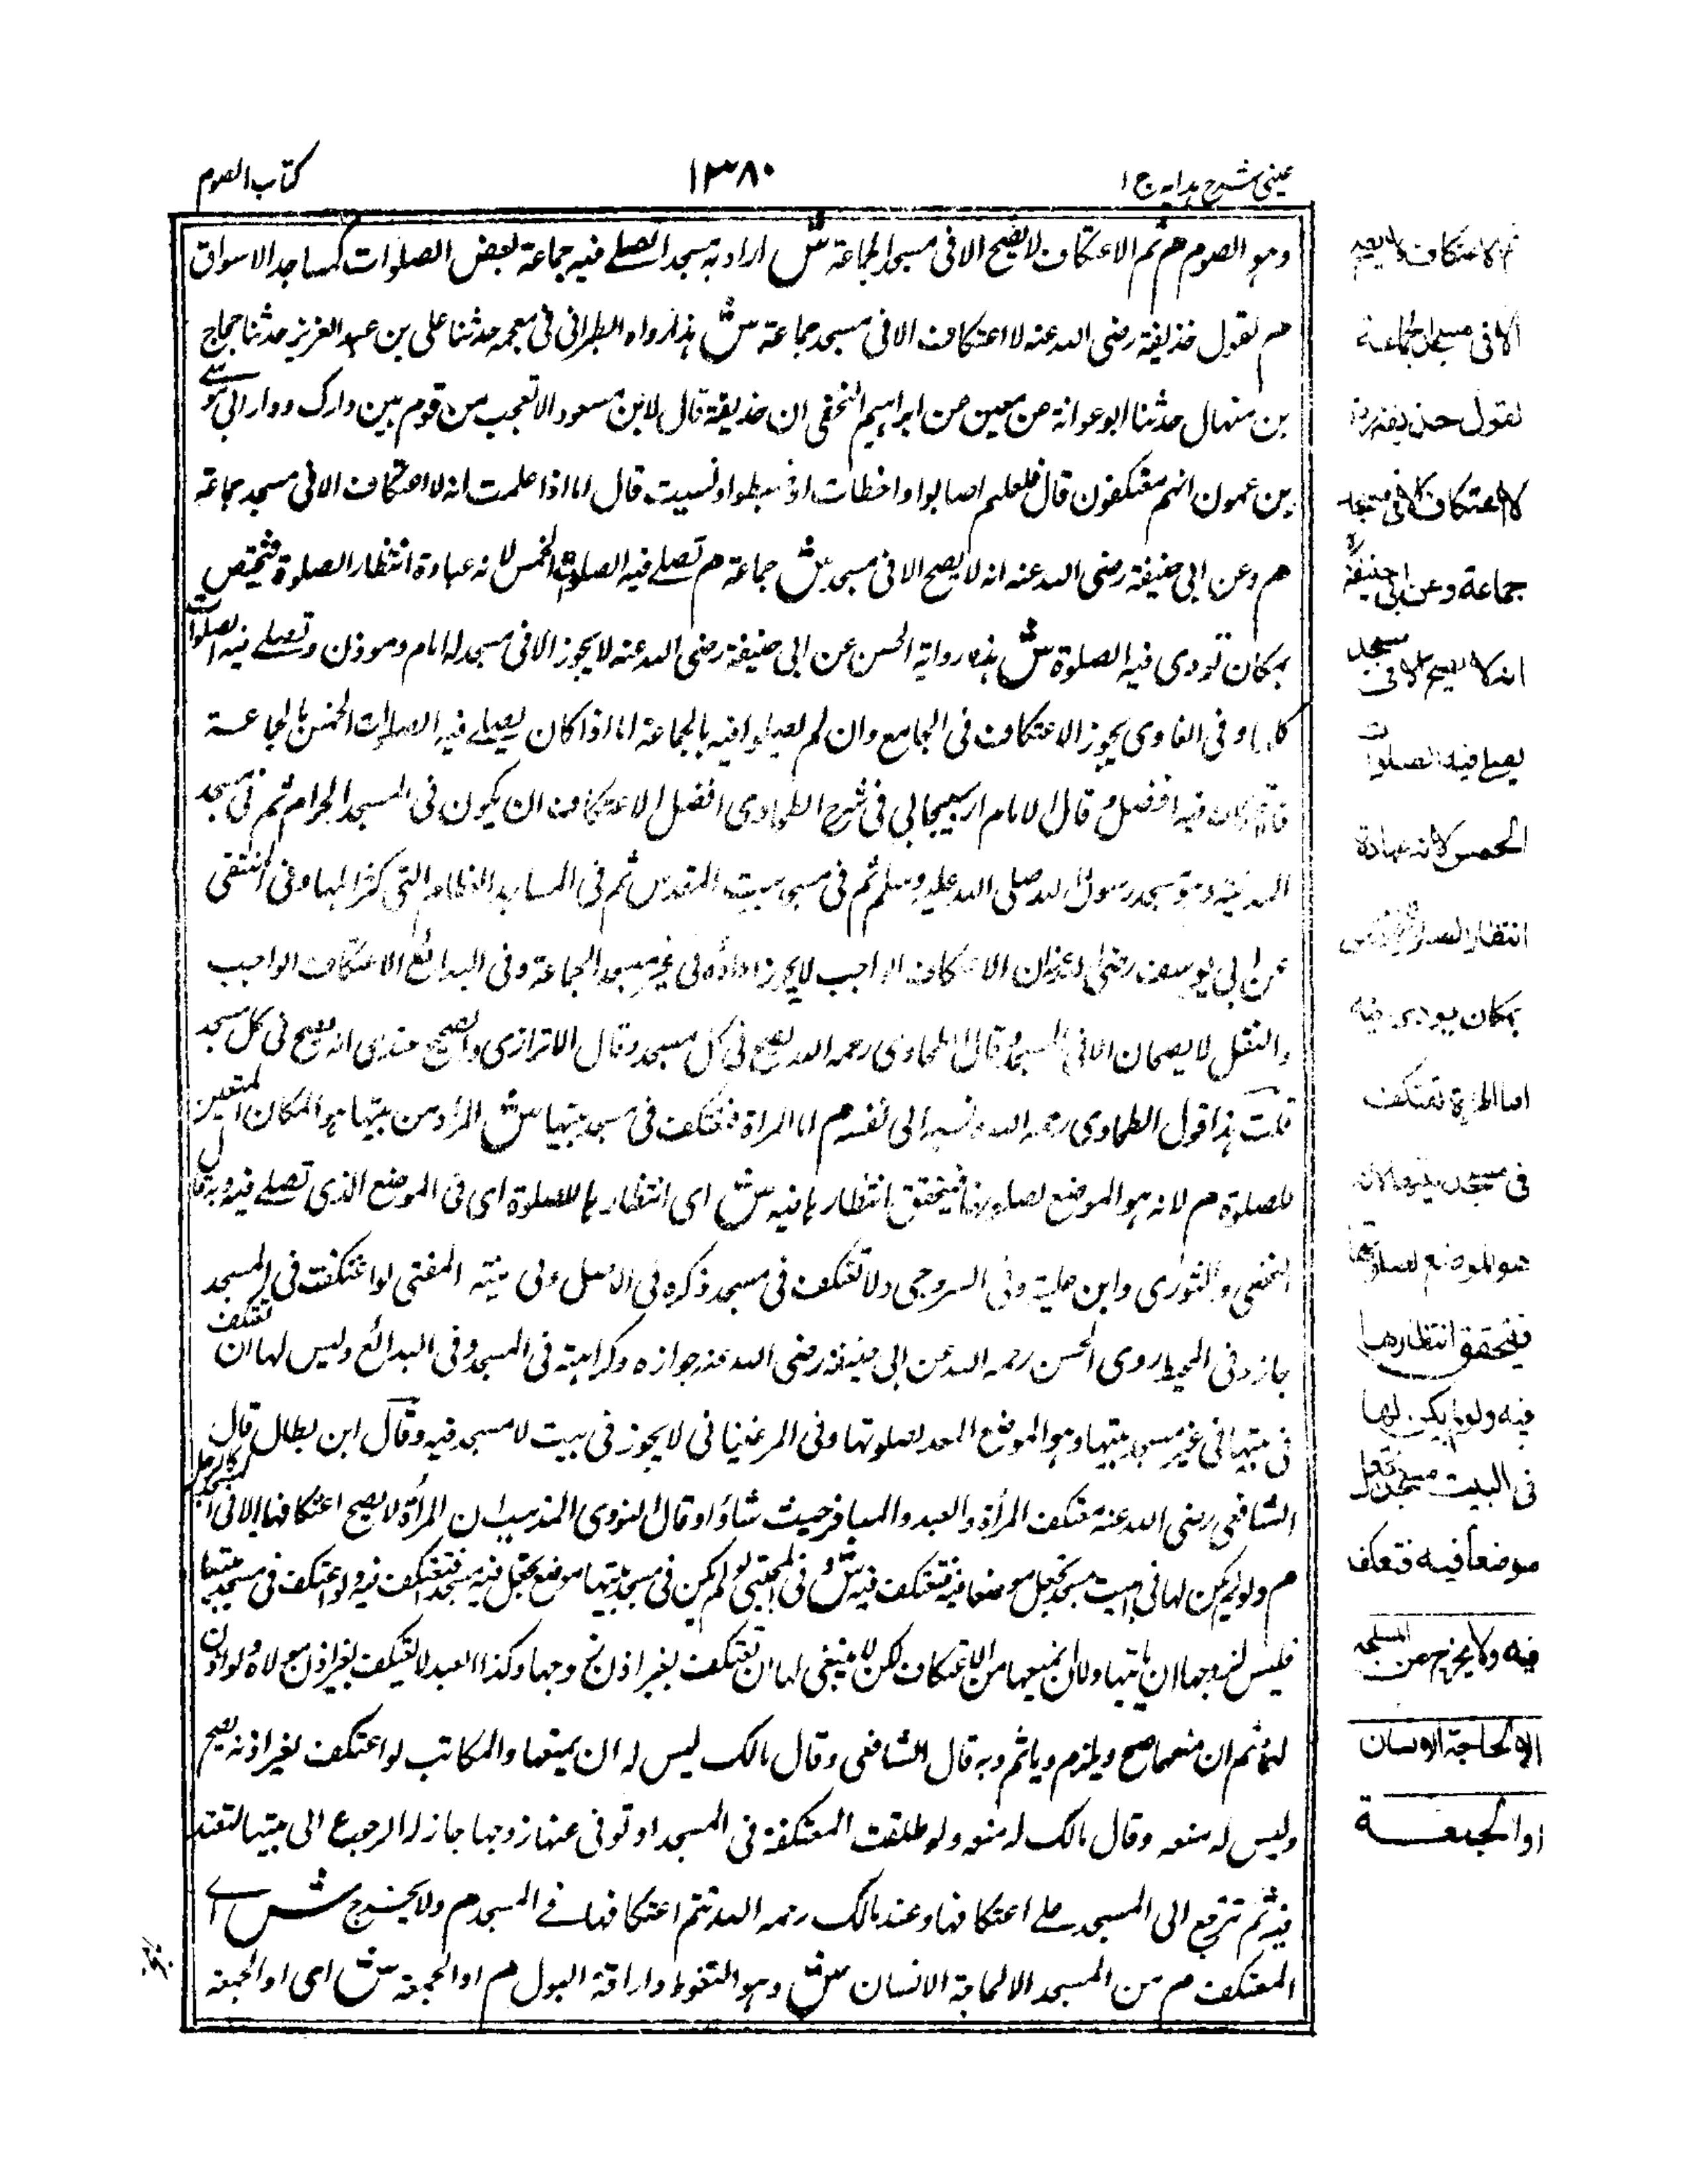 عيني شرح هدايه ج ١
١٣٨٠
كتاب الصوم
وهو الصوم م ثم الاعتكاف لا يصح الا في مسجد الجماعة ش اراد به مسجد اتصلے فيه جماعة بعض الصلوات كمساجد الاسواق
م لقول حذيفة رضى الله عنه لا اعتكاف الا فى مسجد جماعة ش هذا رواه الطبرانى فى معجمه حدثنا على بن عبد العزيز حدثنا حجاج
بن منهال حدثنا ابو عوانة عن معين عن ابراهيم النخعى ان حذيفة قال لابن مسعود الا تعجب من قوم بين دارك ودار ابى موسے
يزعمون انهم معتكفون قال فلعلهم اصابوا واخطأت او حفظوا ونسيت قال اما اذا علمت انه لا اعتكاف الا فى مسجد جماعة
م وعن ابى حنيفة رضى الله عنه انه لا يصح الا فى مسجد ش جماعة م تصلے فيه الصلوات الخمس لانه عبادة انتظار الصلوة فيختص
بمكان تودى فيه الصلوة ش هذه رواية الحسن عن ابى حنيفة رضى الله عنه لا يجوز الا فى مسجد له امام وموذن وتصلے فيه الصلوات
كلها وفى الفتاوى يجوز الاعتكاف فى الجامع وان لم يصلوا فيه بالجماعة اما اذا كان يصلے فيه الصلوات الخمس بالجماعة
فالاعتكاف فيه افضل وقال الامام اسبيجابي فى شرح الطحاوى افضل الاعتكاف ان يكون فى المسجد الحرام ثم فى مسجد
المدينة وهو مسجد رسول الله صلى الله عليه وسلم ثم فى مسجد بيت المقدس ثم فى المساجد العظام التى كثر اهلها وفى المنتقى
عن ابى يوسف رضى الله عنه ان الاعتكاف الواجب لا يجوز اداؤه فى غير مسجد الجماعة وفى البدائع الاعتكاف الواجب
والنفل لا يصحان الا فى المسجد وقال الطحاوى رحمه الله يصح فى كل مسجد وقال الاترازى والصحيح عندى انه يصح فى كل مسجد
قلت هذا قول الطحاوى رحمه الله ونسبه الى نفسه م اما المراة فتعتكف فى مسجد بيتها ش المراد من بيتها هو المكان المتعين
للصلوة م لانه هو الموضع لصلوتها فيتحقق انتظارها فيه ش اى انتظارها للصلوة اى فى الموضع الذى تصلے فيه وبه قال
النخعى والثورى وابن علية وفى السروجى ولا تعتكف فى مسجد ذكره فى الاصل وفى منية المفتى لو اعتكفت فى المسجد
جاز وفى المحيط روى الحسن رحمه الله عن ابى حنيفة رضى الله عنه جوازه وكراهيته فى المسجد وفى البدائع وليس لها ان تعتكف
فى بيتها فى غير مسجد بيتها وهو الموضع المعد لصلوتها وفى المرغينانى لا يجوز فى بيت لا مسجد فيه وقال ابن بطال قال
الشافعى رضى الله عنه معتكف المرأة والعبد والمسافر حيث شاؤا وقال النووى المذهب ان المرأة لا يصح اعتكافها الا فى المسجد كالرجل
م ولو لم يكن لها فى البيت مسجد تجعل موضعا فيه فتعتكف فيه ش وفى المجتبى لو لم يكن فى مسجد بيتها موضع تجعل فيه مسجدا فتعتكف فيه ولو اعتكف فى مسجد بيتها
فليس لزوجها ان ياتيها ولا ان يمنعها من الاعتكاف لكن لا ينبغى لها ان تعتكف بغير اذن زوجها وكذا العبد لا يعتكف بغير اذن مولاه ولو اذن
لها ثم ان منعها صح ويلزم وياثم وبه قال الشافعى وقال مالك ليس له ان يمنعها والمكاتب لو اعتكف بغير اذنه يصح
وليس له منعه وقال مالك له منعه ولو طلقت المعتكفة فى المسجد او توفى عنها زوجها جاز لها الرجوع الى بيتها لتعتد
فيه ثم ترجع الى المسجد على اعتكافها وعند مالك رحمه الله تتم اعتكافها فے المسجد م ولا يخرج ش اے
المعتكف م من المسجد الا لحاجة الانسان ش وهو التغوط واراقة البول م او الجمعة ش اى او الجمعة
ثم الاعتكاف لا يصح
الا فى مسجد الجماعة
لقول حذيفة رض
لا اعتكاف الا فى مسجد
جماعة وعن ابى حنيفة رح
انه لا يصح الا فى مسجد
يصلے فيه الصلوات
الخمس لانه عبادة
انتظار الصلوة فيختص
بمكان يودى فيه
اما المراة تعتكف
فى مسجد بيتها لانه
هو الموضع لصلوتها
فيتحقق انتظارها
فيه ولو لم يكن لها
فى البيت مسجد تجعل
موضعا فيه فتعتكف
فيه ولا يخرج من المسجد
الا لحاجة الانسان
او الجمعة